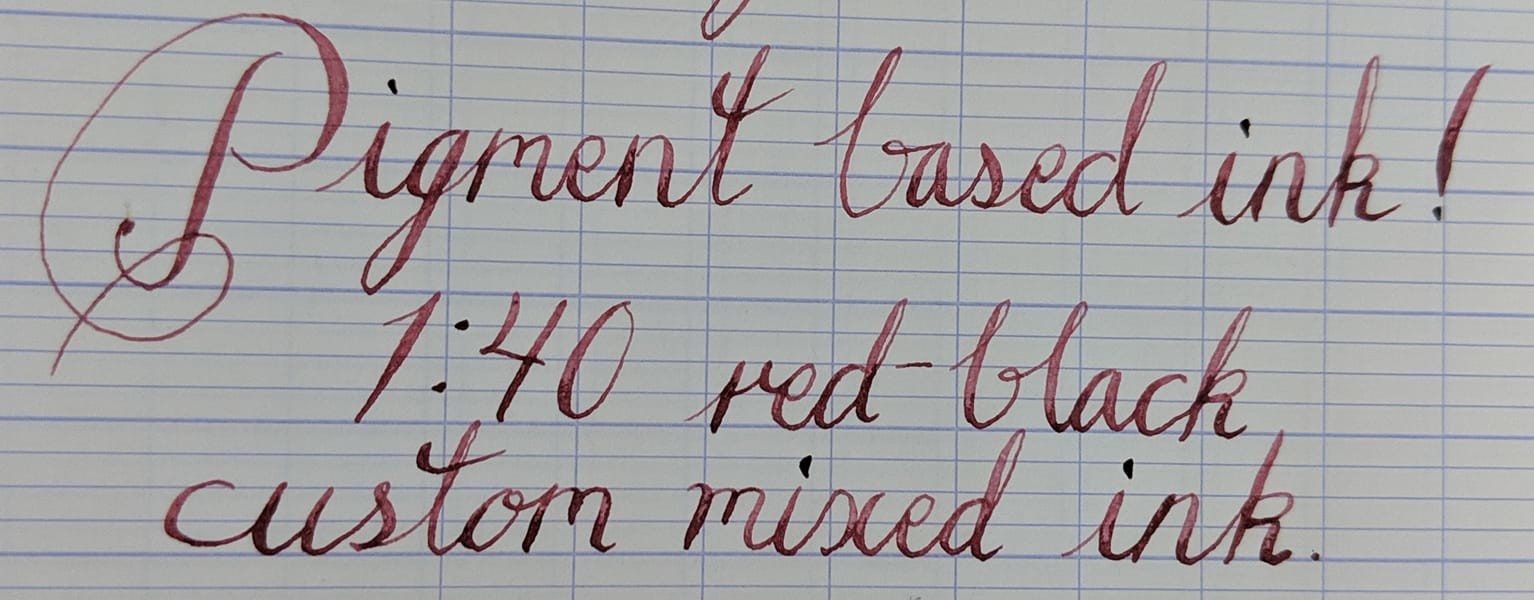 Pigment based ink!
1:40 red-black
custom mixed ink.